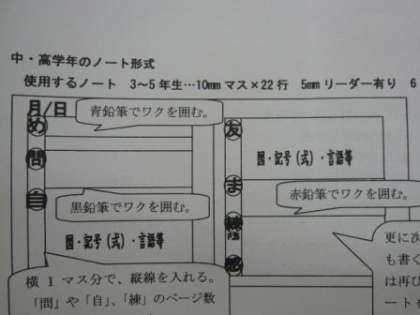 中・高学年のノート形式
使用するノート 3～5年生…10mmマス×22行 5mmリーダー有り 6
月/日
青鉛筆でワクを囲む。
め
友
問
図・記号(式)・言語等
ま
自
赤鉛筆でワクを囲む。
黒鉛筆でワクを囲む。
練
図・記号(式)・言語等
感
更に次
も書く
横1マス分で、縦線を入れる。
は再び
「問」や「自」、「練」のページ数
ートを